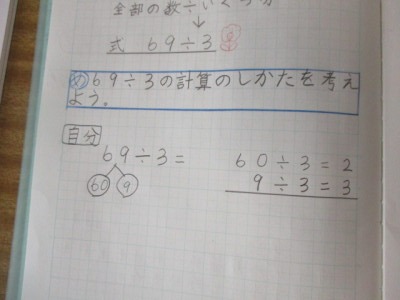 全部の数÷いくつ分
↓
式 69÷3
め 69÷3の計算のしかたを考え
よう。
自分
69÷3=
60 9
60÷3=2
9÷3=3